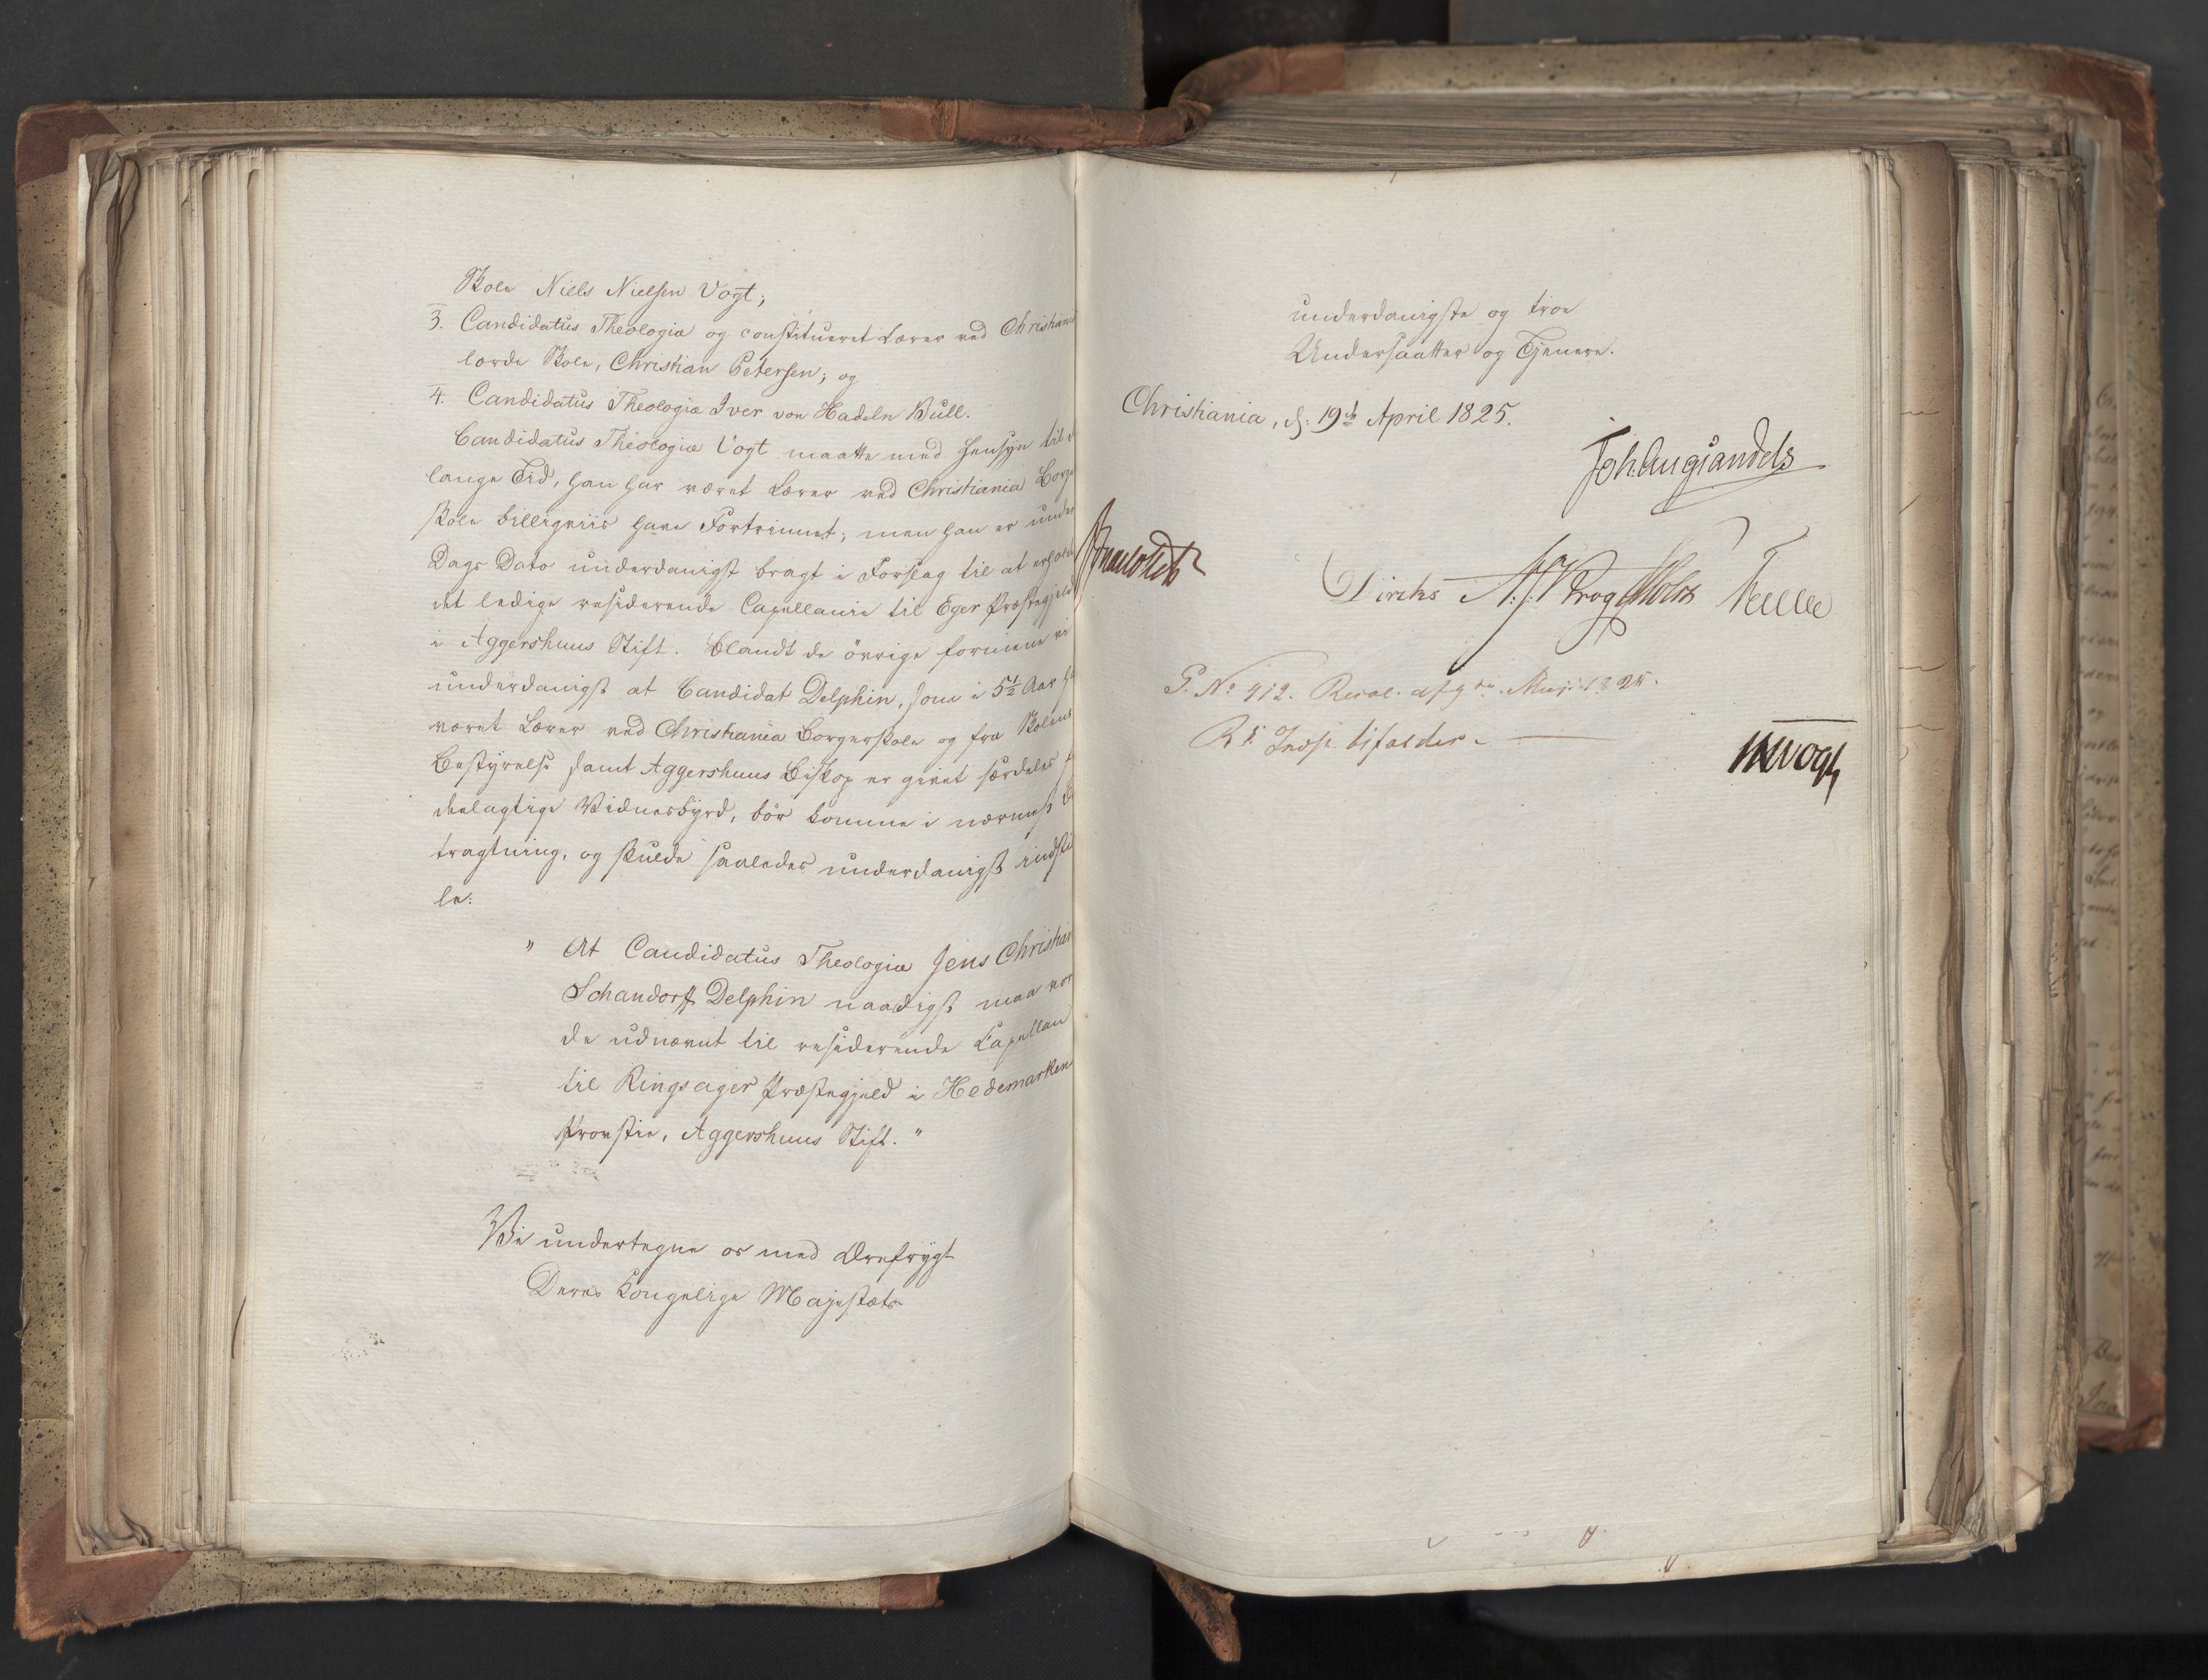 Skole Niels Nielsen Vogt;
3. Candidatus Theologiæ og constitueret Lærer ved Christiania
lærde Skole, Christian Petersen; og
4. Candidatus Theologiæ Iver von Hadeln Bull.
Candidatus Theologiæ Vogt maatte med Hensyn til
lange Tid, han har været Lærer ved Christiania Borger
skole billigviis have Fortrinnet; men han er under
Dags Dato underdanigst bragt i Forslag til at erholde
det ledige residerende Capellanie til Eger Præstegjeld
i Aggershuus Stift. Blandt de övrige formene vi
underdanigst at Candidat Delphin, som i 5½ Aar
været Lærer ved Christiania Borgerskole og fra Skolens
Bestyrelse samt Aggershuus Biskop er givet særdeles
deelagtige Vidnesbyrd, bör komme i nærmest Be
tragtning, og skulde saaledes underdanigst indstil
le:
" At Candidatus Theologiæ Jens Christian
Schandorff Delphin naadigst maa vor
de udnævnt til residerende Capellan
til Ringsager Præstegjeld i Hedemarken
Provstie, Aggershuus Stift. "
Vi undertegne os med Ærefrygt
Deres Kongelige Majestæts
underdanigste og troe
Undersaatter og Tjenere.
Christiania, d: 19de April 1825.
Joh. Aug. Sandels
Diriks Krog Holst
P. No 412. Resol. af 9de Maji 1825.
Rs Indst. bifaldes.
Vogt